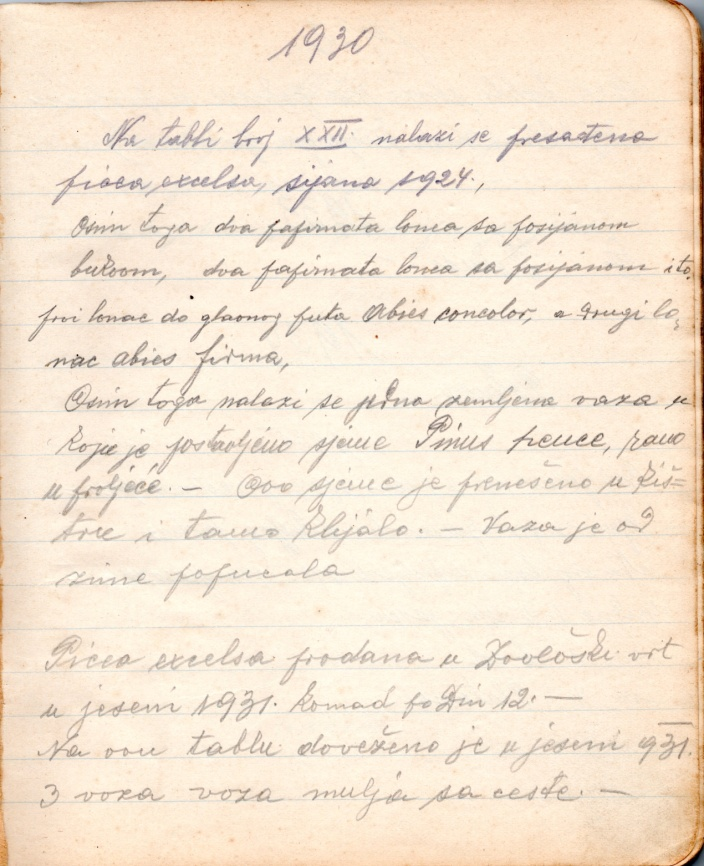 1930
Na tabli broj XXII. nalazi se presađena
picea excelsa, sijana 1924.,
Osim toga dva papirnata lonca sa posijanom
bukvom, dva papirnata lonca sa posijanom i to,
prvi lonac do glavnog puta Abies concolor, a drugi lo=
nac abies firma,
Osim toga nalazi se jedna zemljena vaza u
koju je postavljeno sjeme Pinus peuce, rano
u proljeće. — Ovo sjeme je prenešeno u
i tamo klijalo. — Vaza je od
zime popucala
Picea excelsa prodana u Zoološki vrt
u jeseni 1931. komad po Din 12. —
Na ovu tablu doveženo je u jeseni 931.
3 voza voza mulja sa ceste. —